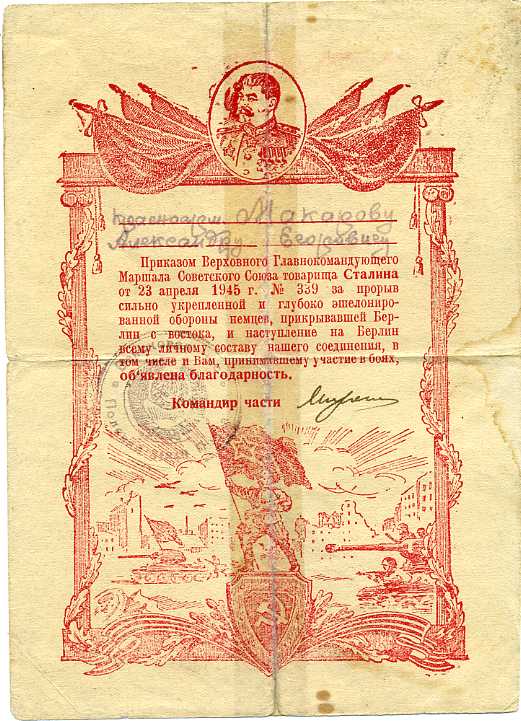 Красноарм. Макарову
Александру Егоровичу
Приказом Верховного Главнокомандующего
Маршала Советского Союза товарища Сталина
от 23 апреля 1945 г. № 339 за прорыв
сильно укрепленной и глубоко эшелониро-
ванной обороны немцев, прикрывавшей Бер-
лин с востока, и наступление на Берлин
всему личному составу нашего соединения, в
том числе и Вам, принимавшему участие в боях,
об‘явлена благодарность.
Командир части